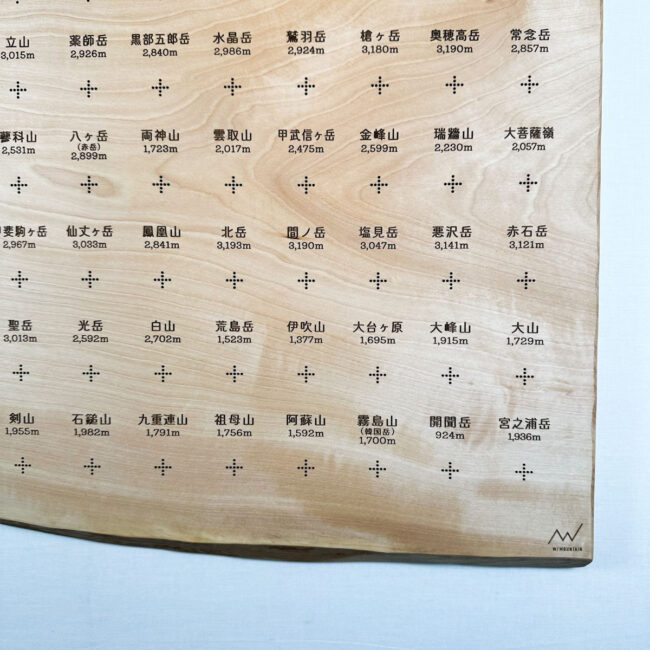 立山 薬師岳 黒部五郎岳 水晶岳 鷲羽岳 槍ヶ岳 奥穂高岳 常念岳
3,015m 2,926m 2,840m 2,986m 2,924m 3,180m 3,190m 2,857m
蓼科山 八ヶ岳 両神山 雲取山 甲武信ヶ岳 金峰山 瑞牆山 大菩薩嶺
(赤岳)
2,531m 2,899m 1,723m 2,017m 2,475m 2,599m 2,230m 2,057m
斐駒ヶ岳 仙丈ヶ岳 鳳凰山 北岳 間ノ岳 塩見岳 悪沢岳 赤石岳
2,967m 3,033m 2,841m 3,193m 3,190m 3,047m 3,141m 3,121m
聖岳 光岳 白山 荒島岳 伊吹山 大台ヶ原 大峰山 大山
3,013m 2,592m 2,702m 1,523m 1,377m 1,695m 1,915m 1,729m
剣山 石鎚山 九重連山 祖母山 阿蘇山 霧島山 開聞岳 宮之浦岳
(韓国岳)
1,955m 1,982m 1,791m 1,756m 1,592m 1,700m 924m 1,936m